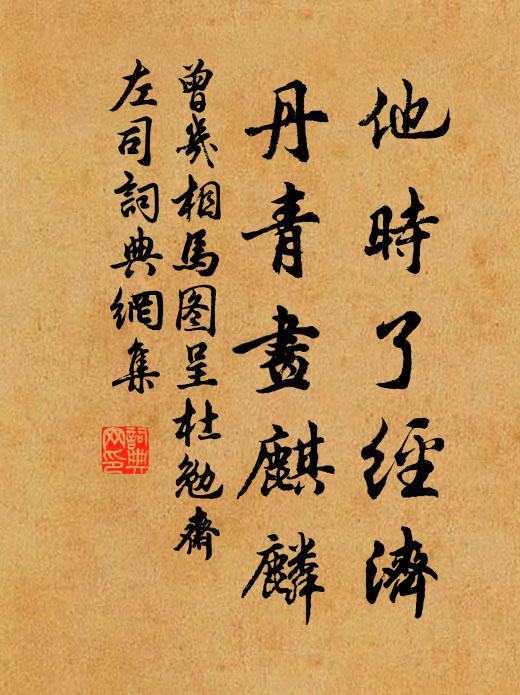 他時了經濟
丹青畫麒麟
曾幾相馬图呈杜勉齋
左司詞典網集
詞典網印